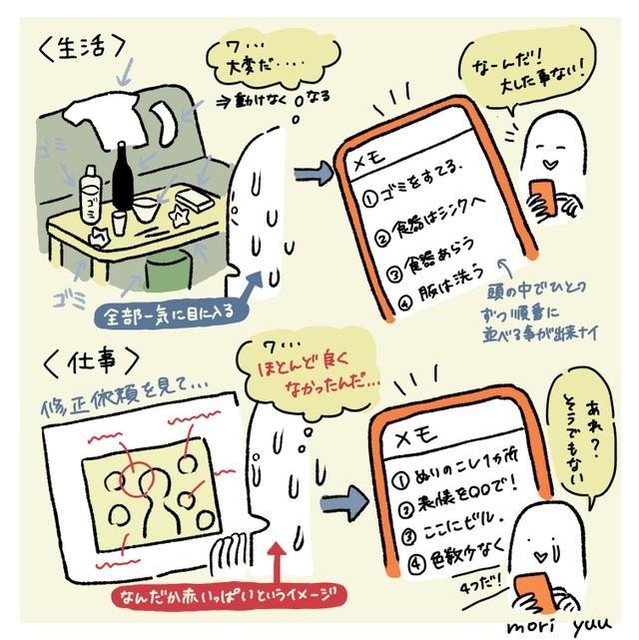 〈生活〉
ワ…
大変だ‥‥
⇒動けなくなる
なーんだ!
大した事ない!
メモ
①ゴミをすてる.
②食器はシンクへ
③食器あらう
④服は洗う
ゴミ
ゴミ
ゴミ
全部一気に目に入る
頭の中でひとつ
ずつ順番に
並べる事が出来ナイ
〈仕事〉
修正依頼を見て…
ワ…
ほとんど良く
なかったんだ…
メモ
①ぬりのこし1か所
②表情を〇〇で!
③ここにビル.
④色数少なく
あれ?
そうでもない
4つだ!
なんだか赤いっぱいというイメージ
mori yuu